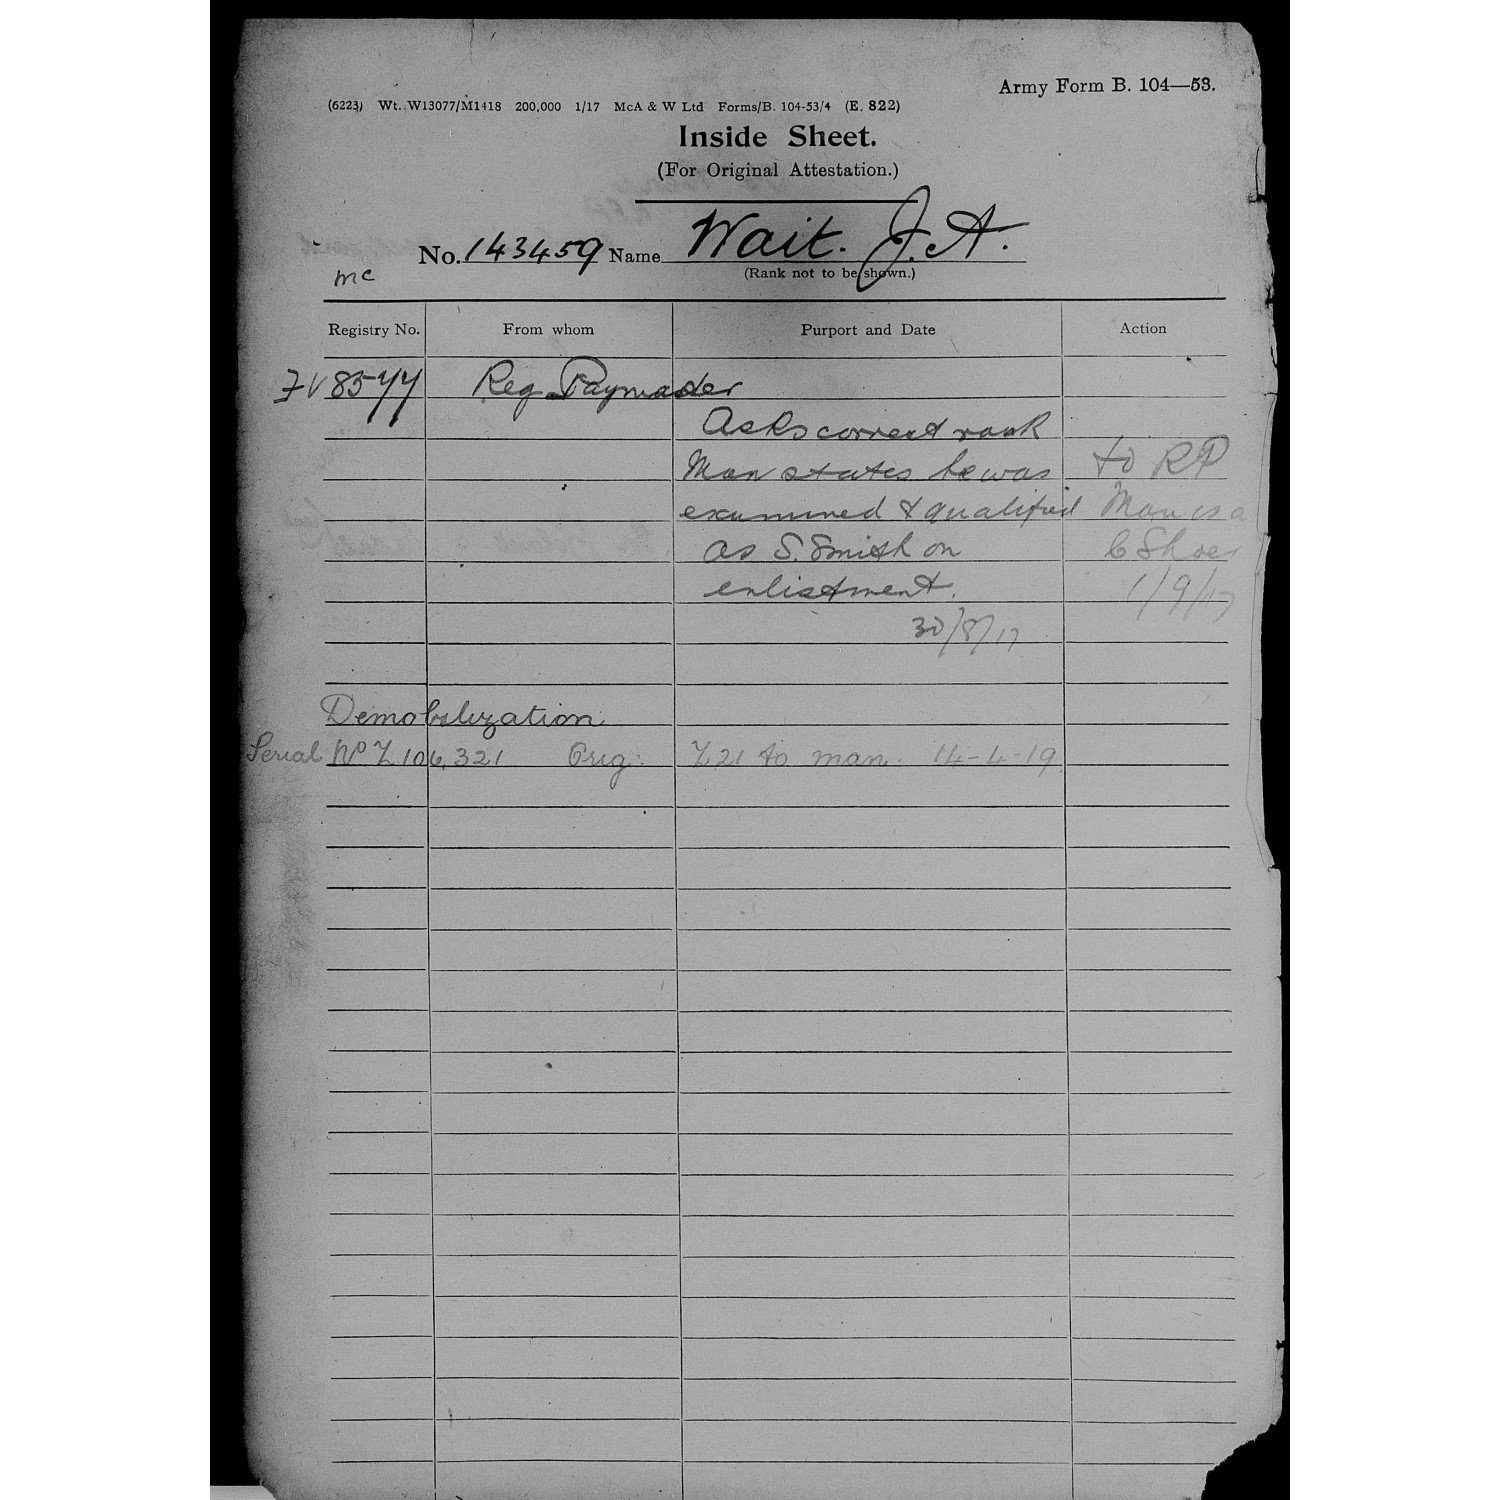 Army Form B. 104—53.
(6223) Wt. W13077/M1418 200,000 1/17 McA & W Ltd Forms/B. 104-53/4 (E. 822)
Inside Sheet.
(For Original Attestation.)
No. 143459 Name Wait. J.A.
(Rank not to be shown.)
mc
Registry No. From whom Purport and Date Action
8577 Reg Paymaster
Asks correct rank
Man states he was to RP
examined & qualified Man is a
as S. Smith on C Shoer
enlistment. 1/9/17
30/8/17
Demobilization
Serial No Z 106,321 Orig: Z21 to man. 14-4-19